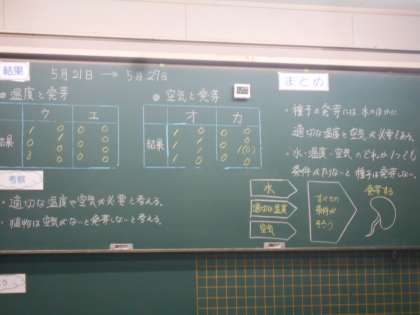 結果
5月21日 → 5月27日
●温度と発芽
ウ エ
結果
●空気と発芽
オ カ
結果
考察
・適切な温度や空気が必要と考える。
・植物は空気がないと発芽しないと考える。
まとめ
・種子の発芽には水のほかに
適切な温度と空気が必要である。
・水・温度・空気のどれか1つでも
条件がたりないと種子は発芽しない。
水
適切な温度
空気
すべての
条件が
そろう
発芽する